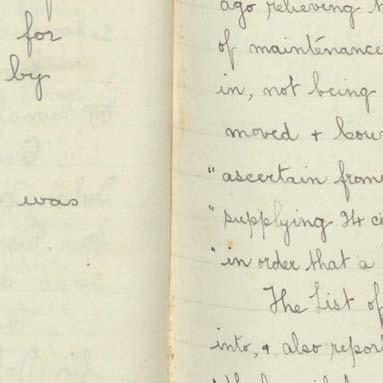 for
by
was
ago relieving
of maintenance
in, not being
moved +
"ascertain from
"supplying 24
"in order that a
The List of
into, & also